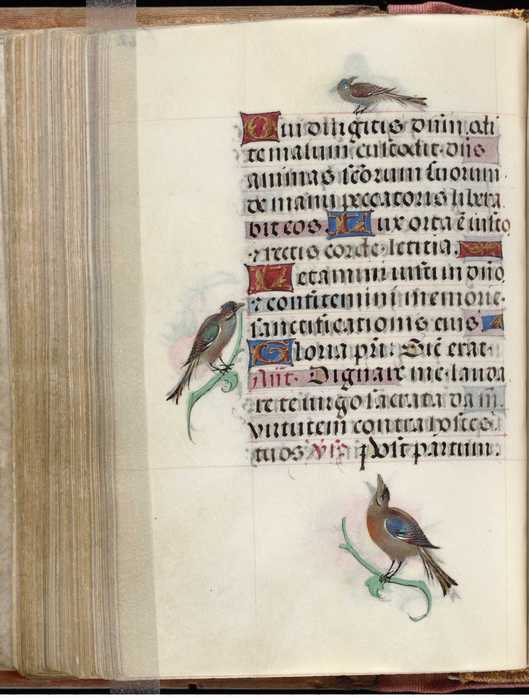 Qui diligitis dnm odi
te malum custodit dns
animas scorum suorum
de manu peccatoris libera
bit eos. Lux orta e iusto
⁊ rectis corde letitia.
Letamini iusti in dno
⁊ confitemini memorie
sanctificationis eius
Gloria pri. Sic erat.
Ant. Dignare me lauda
re te uirgo sacrata da m.
virtutem contra hostes
tuos Vs. Post partum.